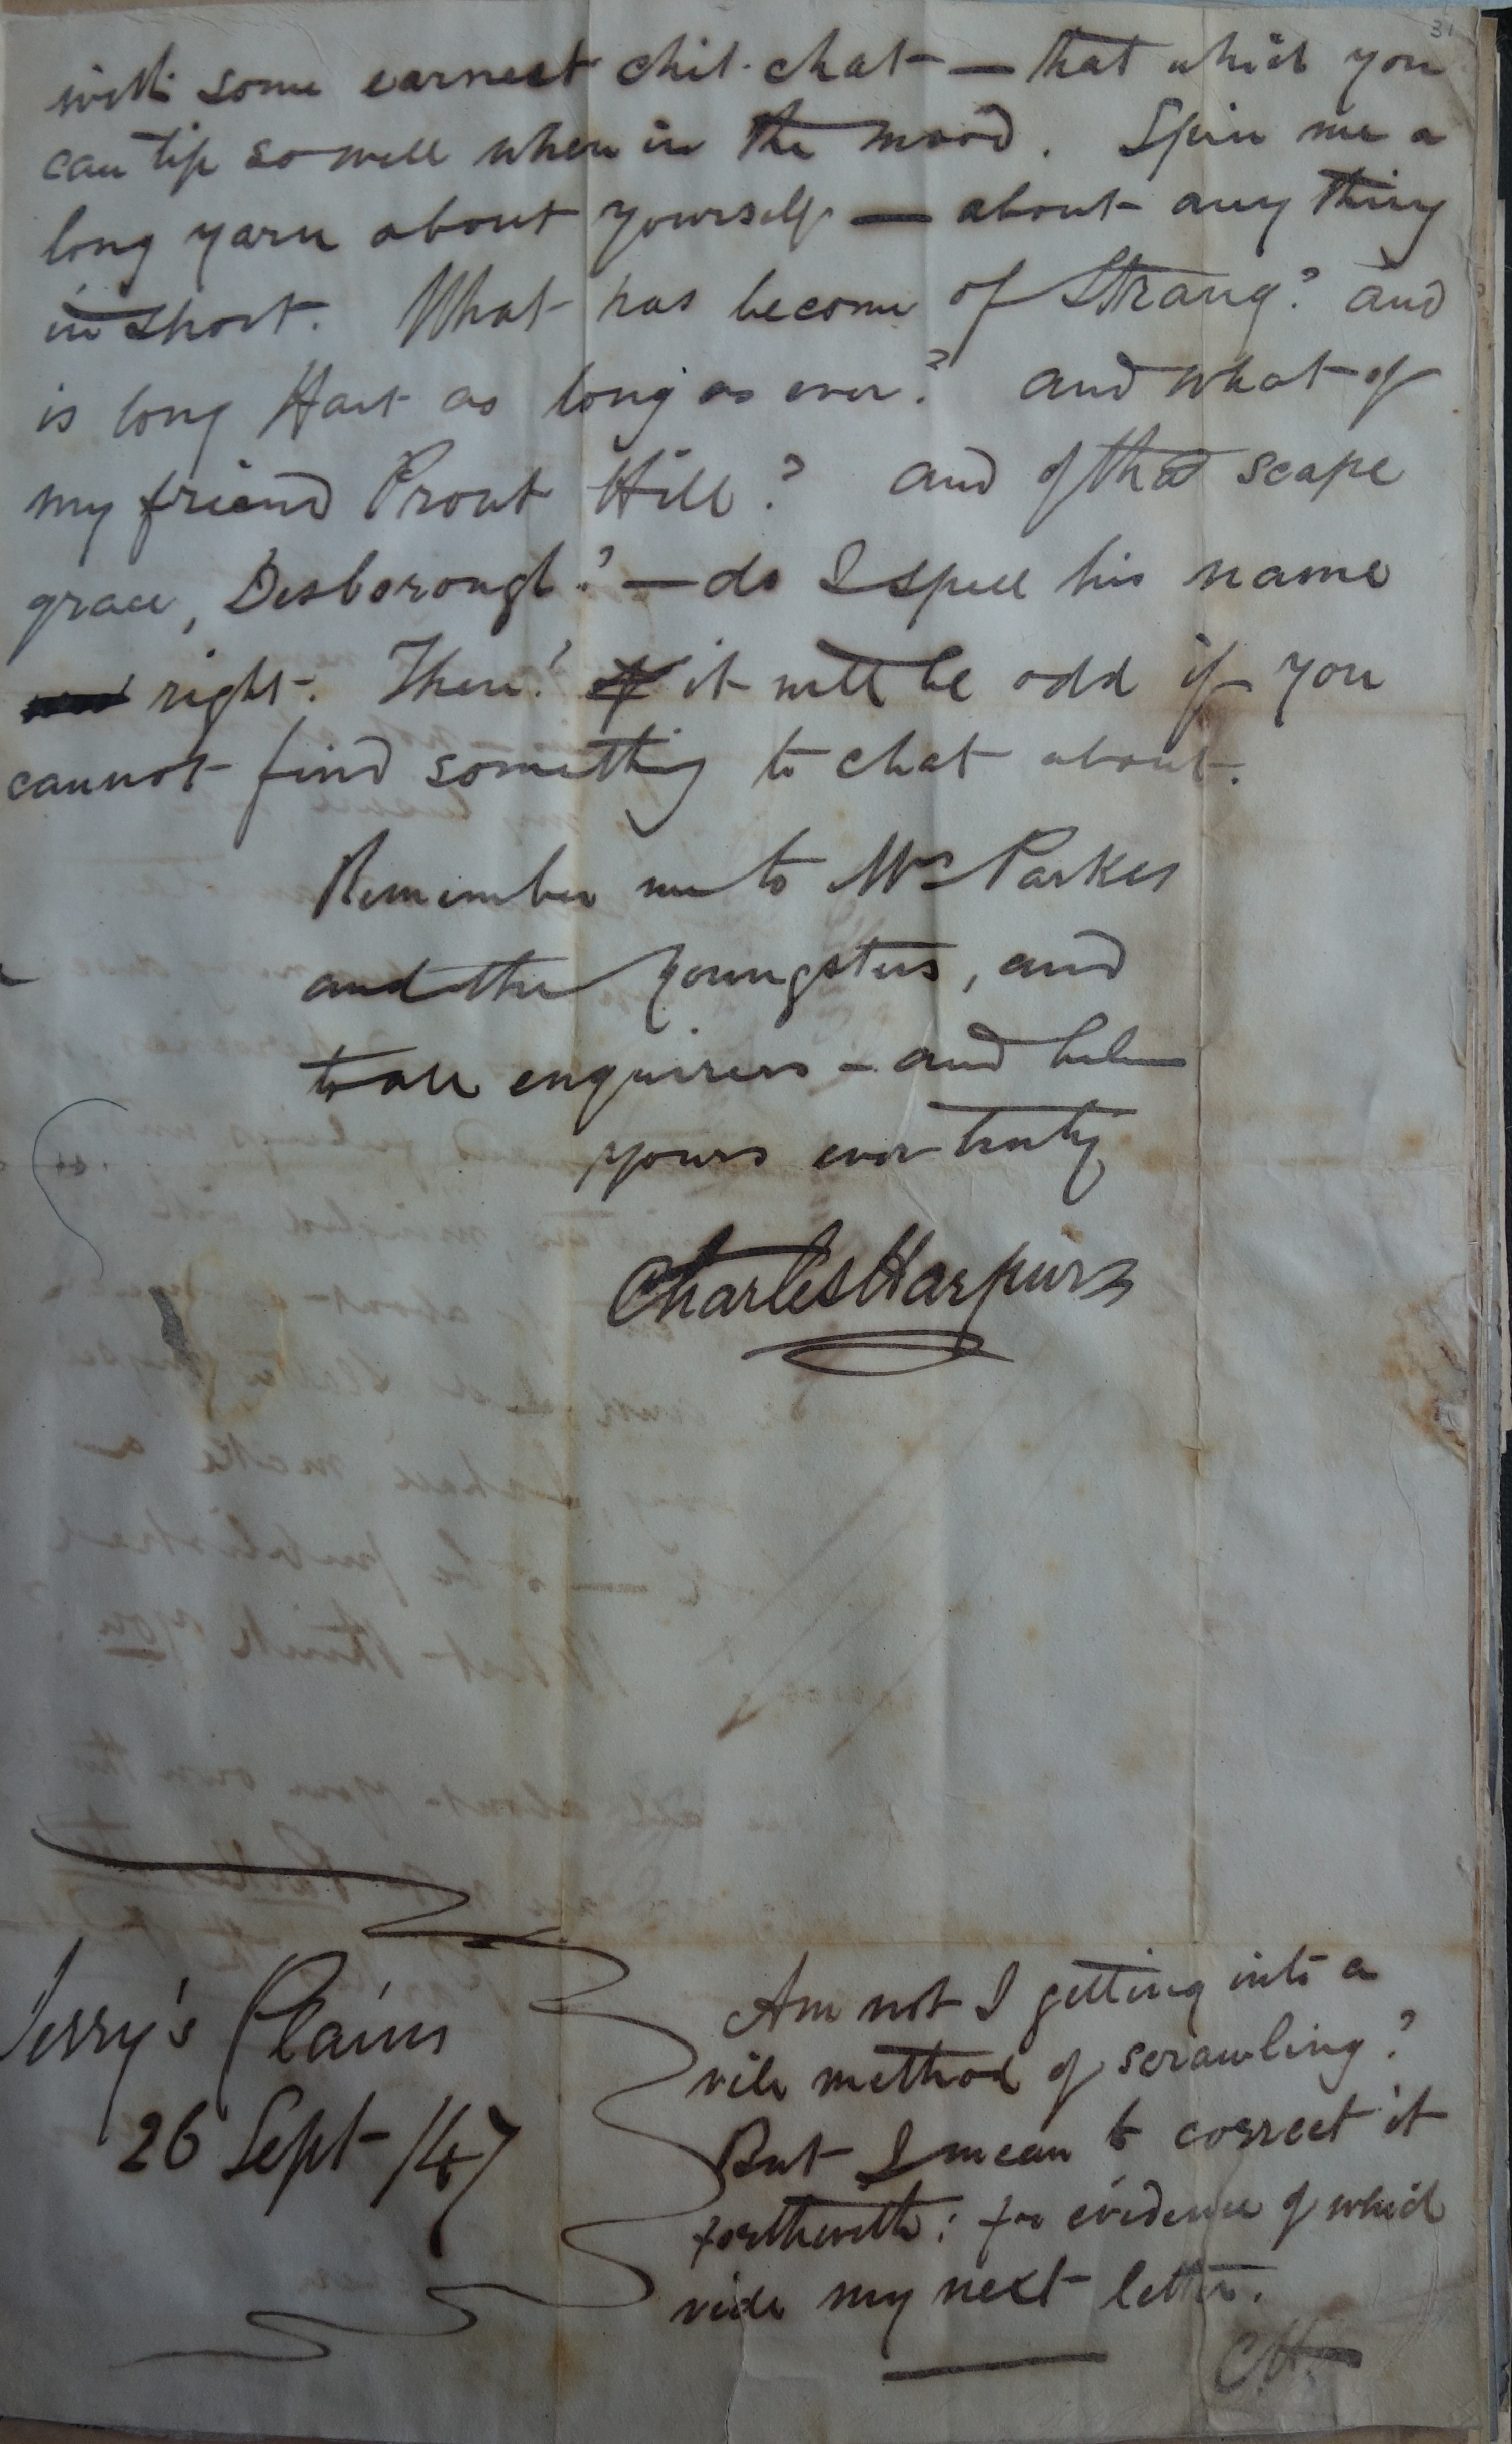 31
with some earnest chit-chat — that which you
can tip so well when in the mood. Spin me a
long yarn about yourself — about any thing
in short. What has become of Strang? and
is long Hart as long as ever? and what of
my friend Prout Hill? and of that scape
grace, Desborough? — do I spell his name
right. There! it will be odd if you
cannot find something to chat about.
Remember me to Mrs Parkes
and the youngsters, and
to all enquirers — and
yours ever truly
Charles Harpur
Jerry's Plains
26 Sept /47
Am not I getting into a
vile method of scrawling?
But I mean to correct it
forthwith: for evidence of which
vide my next letter.
C.H.